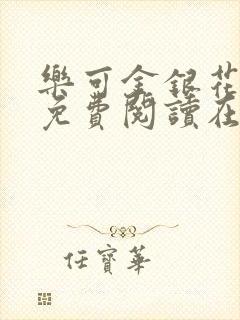 樂可金銀花
免費閱讀在
任寶華